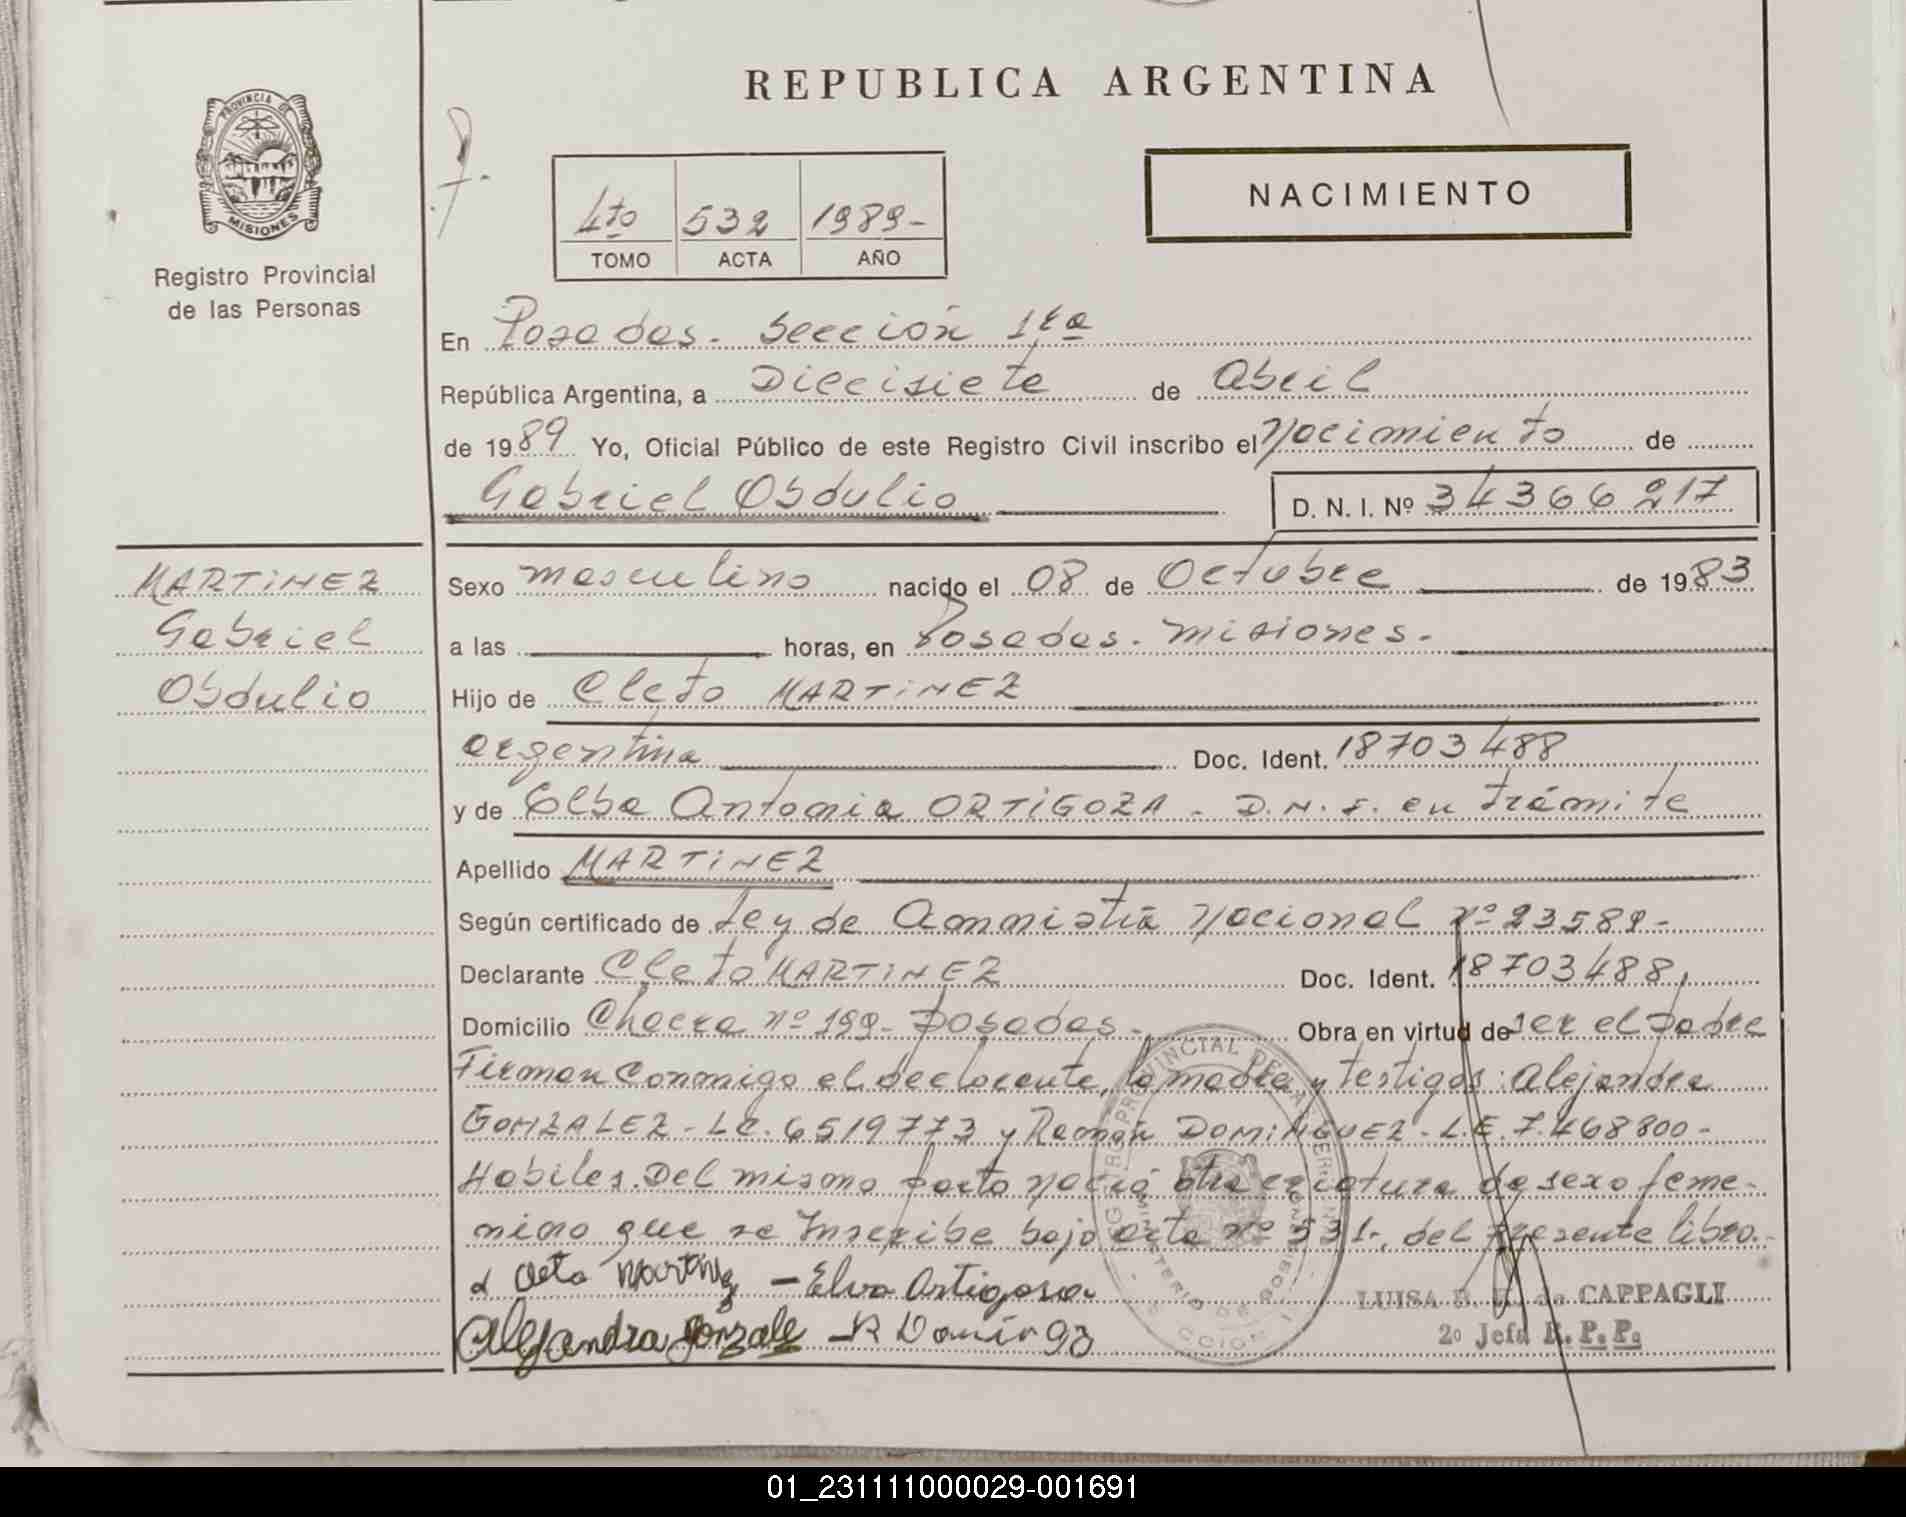 REPUBLICA ARGENTINA
PROVINCIA DE
MISIONES
Registro Provincial
de las Personas
4to 532 1989-
TOMO ACTA AÑO
NACIMIENTO
En Posadas. Sección 1ra
República Argentina, a Diecisiete de Abril
de 1989 Yo, Oficial Público de este Registro Civil inscribo el Nacimiento de
Gabriel Obdulio D. N. I. Nº 34366217
MARTINEZ
Gabriel
Obdulio
Sexo masculino nacido el 08 de Octubre de 1983
a las horas, en Posadas. Misiones.
Hijo de Cleto MARTINEZ
argentina Doc. Ident. 18703488
y de Elba Antonia ORTIGOZA - D.N.I. en trámite
Apellido MARTINEZ
Según certificado de Ley de Ammistia Nacional Nº 23589-
Declarante Cleto MARTINEZ Doc. Ident. 18703488
Domicilio Chacra nº 199- Posadas- Obra en virtud de ser el padre
Firman conmigo el declarante, la madre y testigos: Alejandra
GONZALEZ - LC. 6519773 y Ramón DOMINGUEZ - L.E. 7.468800-
Habiles. Del mismo parto nació otra criatura de sexo feme-
nino que se Inscribe bajo acta nº 531-, del presente libro.-
Cleto Martinez - Elva Ortigosa
Alejandra gonzale - R Domingz
LUISA B. de CAPPAGLI
2º Jefa R. P. P.
01_231111000029-001691